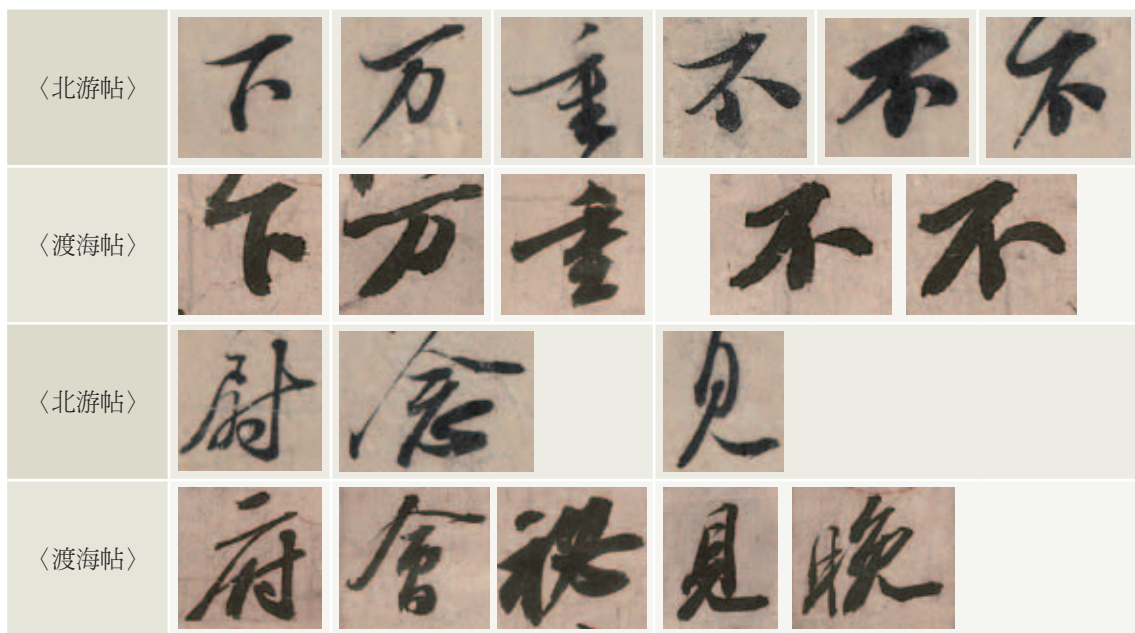 〈北游帖〉 下 万 重 不 不 不
〈渡海帖〉 下 万 重 不 不
〈北游帖〉 尉 念 见
〈渡海帖〉 府 會 見 晚